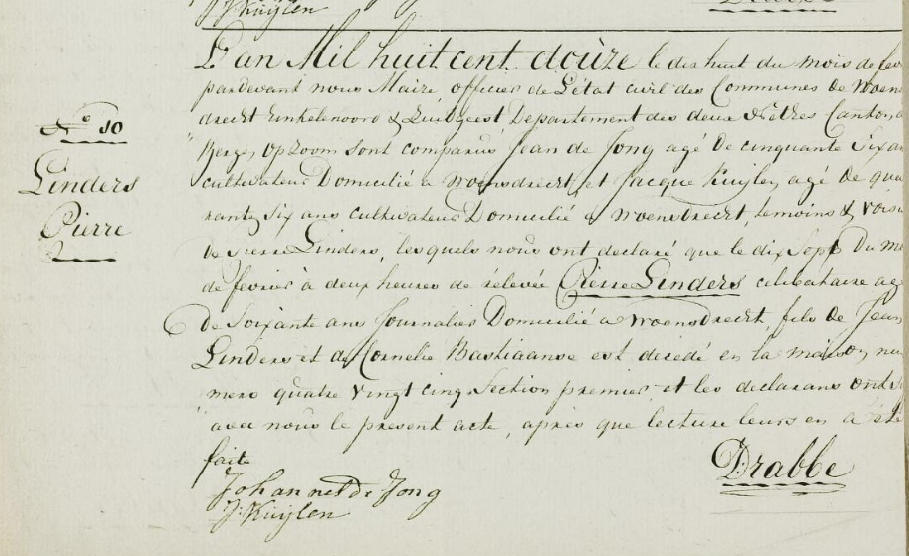 J: Kuijlen
N° 10
Linders
Pierre
L'an Mil huit cent douze le dix huit du mois de fev
pardevant nous Maire officier de L'état civil des Communes de Woens
drecht Hinkelenoord & Zuidgeest Departement des deux Nèthes Canton
Bergen op Zoom sont comparus Jean de Jong agé de cinquante Six an
cultivateur Domicilié a Woensdrecht, et Jacque Kuijlen agé de qua
rante Six ans cultivateur Domicilié a Woensdrecht, temoins & voisi
de Pierre Linders, les quels nous ont declaré que le dix Sept Du m
de fevrier à deux heures de rélevée Pierre Linders celibataire ag
De Soixante ans Journalier Domicilié a Woensdrecht, fils de Jean
Linders et de Cornelie Bastiaanse est décédé en la maison nu
mero quatre Vingt cinq Section premier, et les declarans ont
avec nous le present acte, après que lecture leurs en a été
faite
Drabbe
Johannes de Jong
J: Kuijlen